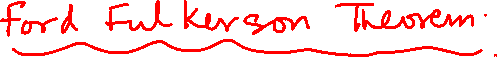 Ford Fulkerson Theorem.